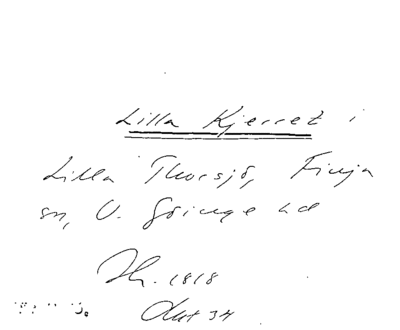 Lilla Kjerret i
Lilla Thorsjö, Finja
sn, V. Göinge hd
Th. 1818
Akt 34